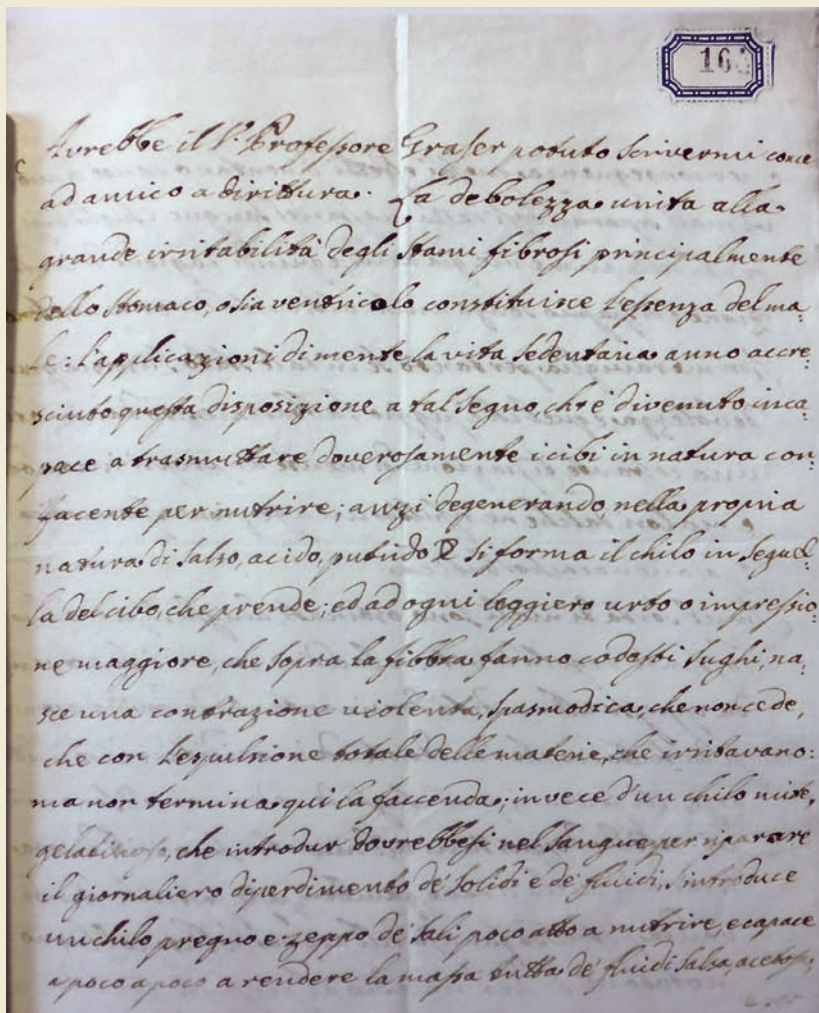 16
Avrebbe il Sr. Professore Graser potuto scrivermi come
ad amico a dirittura. La debolezza unita alla
grande irritabilità degli stami fibrosi principalmente
dello stomaco, o sia ventricolo constituisce l'essenza del ma:
le: l'applicazioni di mente la vita sedentaria anno accre:
sciuto questa disposizione a tal segno, che è divenuto inca:
pace a trasmuttare doverosamente i cibi in natura con:
facente per nutrire; anzi degenerando nella propria
natura di salso, acido, putrido si forma il chilo in seque:
la del cibo, che prende; ed ad ogni leggiero urto o impressio:
ne maggiore, che sopra la fibbra fanno codosti sughi, na:
sce una contrazione violenta, spasmodica, che non cede,
che con l'espulsione totale delle materie, che irritavano:
ma non termina qui la faccenda; invece d'un chilo mite,
gelatinoso, che introdur dovrebbesi nel sangue per riparare
il giornaliero disperdimento de' solidi e de' fluidi, s'introduce
un chilo pregno e zeppo de' sali poco atto a nutrire, e capace
a poco a poco a rendere la massa tutta de' fluidi salsa,